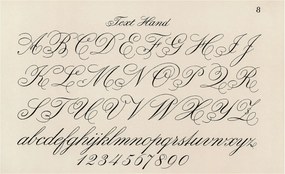 8
Text Hand
A B C D E F G H I J
K L M N O P Q R
S T U V W X Y Z
abcdefghijklmnopqrstuvwxyz
1234567890